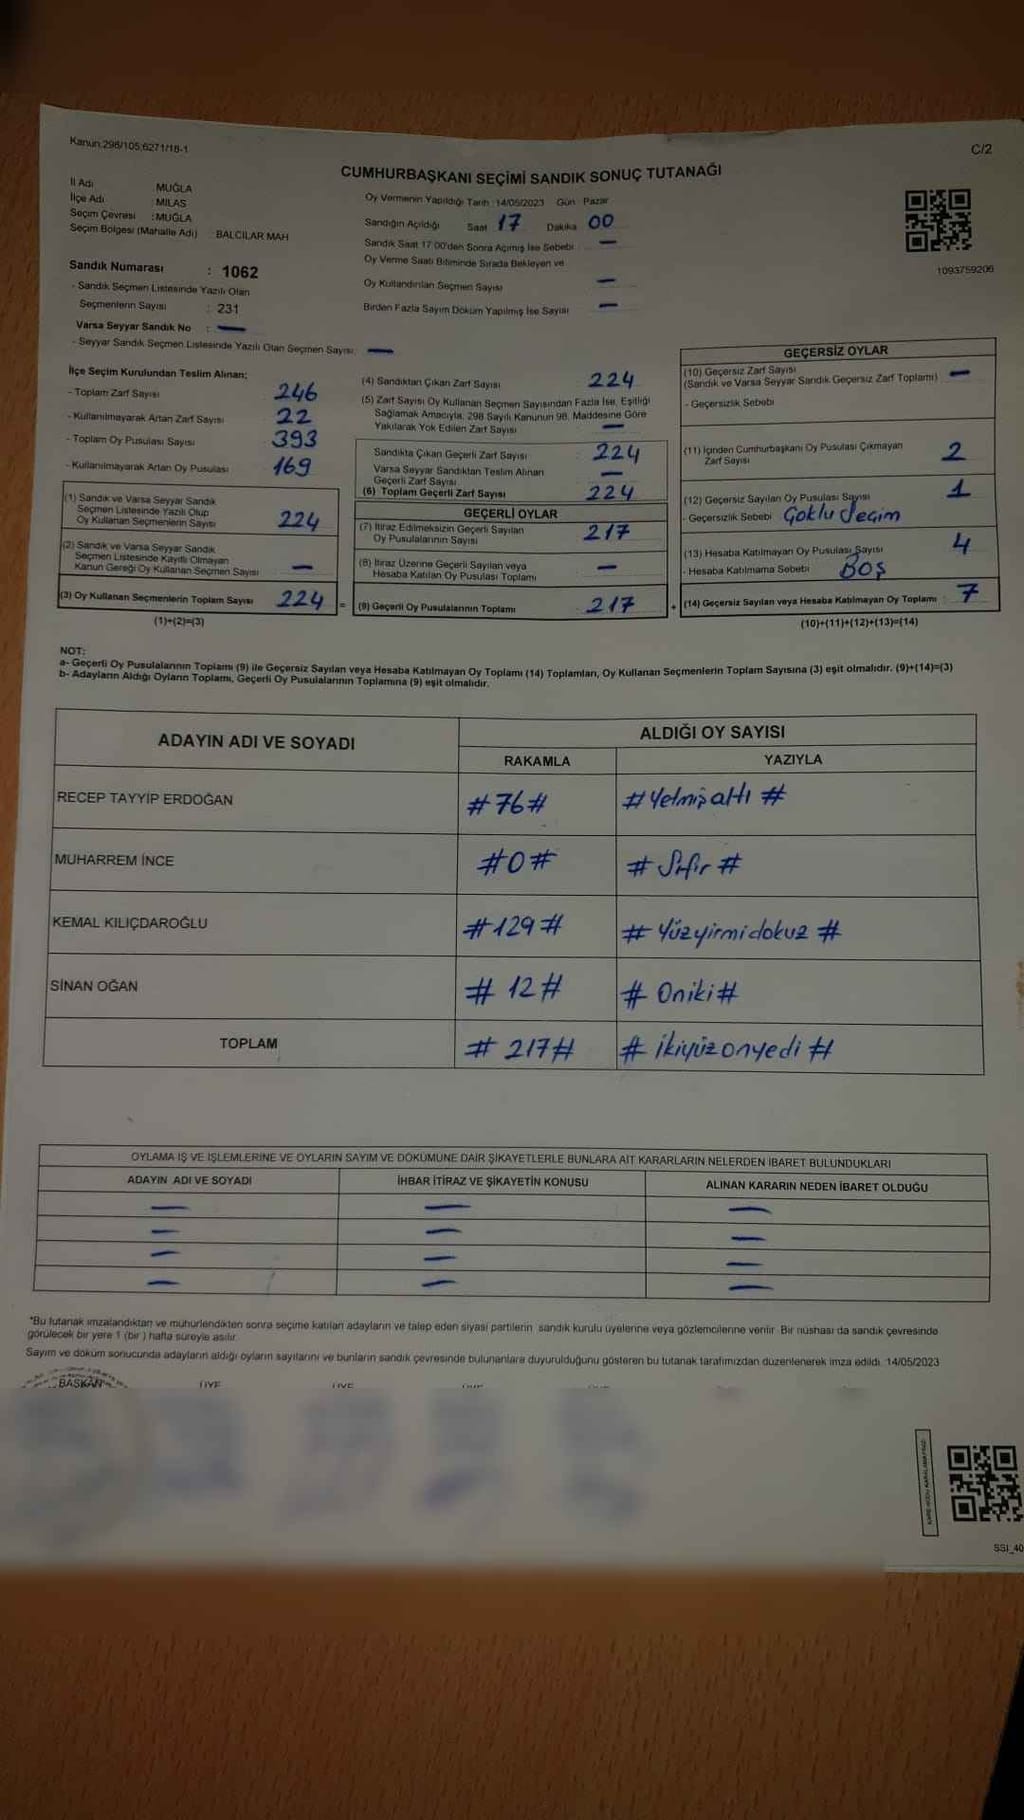 Kanun:298/105;6271/18-1
C/2
CUMHURBAŞKANI SEÇİMİ SANDIK SONUÇ TUTANAĞI
İl Adı : MUĞLA
İlçe Adı : MİLAS
Seçim Çevresi : MUĞLA
Seçim Bölgesi (Mahalle Adı) : BALCILAR MAH
Sandık Numarası : 1062
- Sandık Seçmen Listesinde Yazılı Olan
Seçmenlerin Sayısı : 231
Varsa Seyyar Sandık No : —
- Seyyar Sandık Seçmen Listesinde Yazılı Olan Seçmen Sayısı: —
Oy Vermenin Yapıldığı Tarih :14/05/2023 Gün : Pazar
Sandığın Açıldığı Saat 17 Dakika 00
Sandık Saat 17:00'den Sonra Açılmış İse Sebebi —
Oy Verme Saati Bitiminde Sırada Bekleyen ve
Oy Kullandırılan Seçmen Sayısı —
Birden Fazla Sayım Döküm Yapılmış İse Sayısı —
1093759206
İlçe Seçim Kurulundan Teslim Alınan;
- Toplam Zarf Sayısı 246
- Kullanılmayarak Artan Zarf Sayısı 22
- Toplam Oy Pusulası Sayısı 393
- Kullanılmayarak Artan Oy Pusulası 169
(1) Sandık ve Varsa Seyyar Sandık
Seçmen Listesinde Yazılı Olup
Oy Kullanan Seçmenlerin Sayısı 224
(2) Sandık ve Varsa Seyyar Sandık
Seçmen Listesinde Kayıtlı Olmayan
Kanun Gereği Oy Kullanan Seçmen Sayısı —
(3) Oy Kullanan Seçmenlerin Toplam Sayısı 224 =
(1)+(2)=(3)
(4) Sandıktan Çıkan Zarf Sayısı 224
(5) Zarf Sayısı Oy Kullanan Seçmen Sayısından Fazla İse, Eşitliği
Sağlamak Amacıyla, 298 Sayılı Kanunun 98. Maddesine Göre
Yakılarak Yok Edilen Zarf Sayısı —
Sandıkta Çıkan Geçerli Zarf Sayısı 224
Varsa Seyyar Sandıktan Teslim Alınan
Geçerli Zarf Sayısı —
(6) Toplam Geçerli Zarf Sayısı 224
GEÇERLİ OYLAR
(7) İtiraz Edilmeksizin Geçerli Sayılan
Oy Pusulalarının Sayısı 217
(8) İtiraz Üzerine Geçerli Sayılan veya
Hesaba Katılan Oy Pusulası Toplamı —
(9) Geçerli Oy Pusulalarının Toplamı 217 +
GEÇERSİZ OYLAR
(10) Geçersiz Zarf Sayısı
(Sandık ve Varsa Seyyar Sandık Geçersiz Zarf Toplamı) —
- Geçersizlik Sebebi
(11) İçinden Cumhurbaşkanı Oy Pusulası Çıkmayan
Zarf Sayısı 2
(12) Geçersiz Sayılan Oy Pusulası Sayısı 1
- Geçersizlik Sebebi Çoklu Seçim
(13) Hesaba Katılmayan Oy Pusulası Sayısı 4
- Hesaba Katılmama Sebebi BOŞ
(14) Geçersiz Sayılan veya Hesaba Katılmayan Oy Toplamı 7
(10)+(11)+(12)+(13)=(14)
NOT:
a- Geçerli Oy Pusulalarının Toplamı (9) ile Geçersiz Sayılan veya Hesaba Katılmayan Oy Toplamı (14) Toplamları, Oy Kullanan Seçmenlerin Toplam Sayısına (3) eşit olmalıdır. (9)+(14)=(3)
b- Adayların Aldığı Oyların Toplamı, Geçerli Oy Pusulalarının Toplamına (9) eşit olmalıdır.
ADAYIN ADI VE SOYADI
ALDIĞI OY SAYISI
RAKAMLA YAZIYLA
RECEP TAYYİP ERDOĞAN #76# #Yetmişaltı#
MUHARREM İNCE #0# #Sıfır#
KEMAL KILIÇDAROĞLU #129# #Yüzyirmidokuz#
SİNAN OĞAN #12# #Oniki#
TOPLAM #217# #ikiyüzonyedi#
OYLAMA İŞ VE İŞLEMLERİNE VE OYLARIN SAYIM VE DÖKÜMÜNE DAİR ŞİKAYETLERLE BUNLARA AİT KARARLARIN NELERDEN İBARET BULUNDUKLARI
ADAYIN ADI VE SOYADI İHBAR İTİRAZ VE ŞİKAYETİN KONUSU ALINAN KARARIN NEDEN İBARET OLDUĞU
— — —
— — —
— — —
— — —
*Bu tutanak imzalandıktan ve mühürlendikten sonra seçime katılan adayların ve talep eden siyasi partilerin sandık kurulu üyelerine veya gözlemcilerine verilir. Bir nüshası da sandık çevresinde
görülecek bir yere 1 (bir ) hafta süreyle asılır.
Sayım ve döküm sonucunda adayların aldığı oyların sayılarını ve bunların sandık çevresinde bulunanlara duyurulduğunu gösteren bu tutanak tarafımızdan düzenlenerek imza edildi. 14/05/2023
BAŞKAN ÜYE ÜYE ÜYE ÜYE
SSI_40